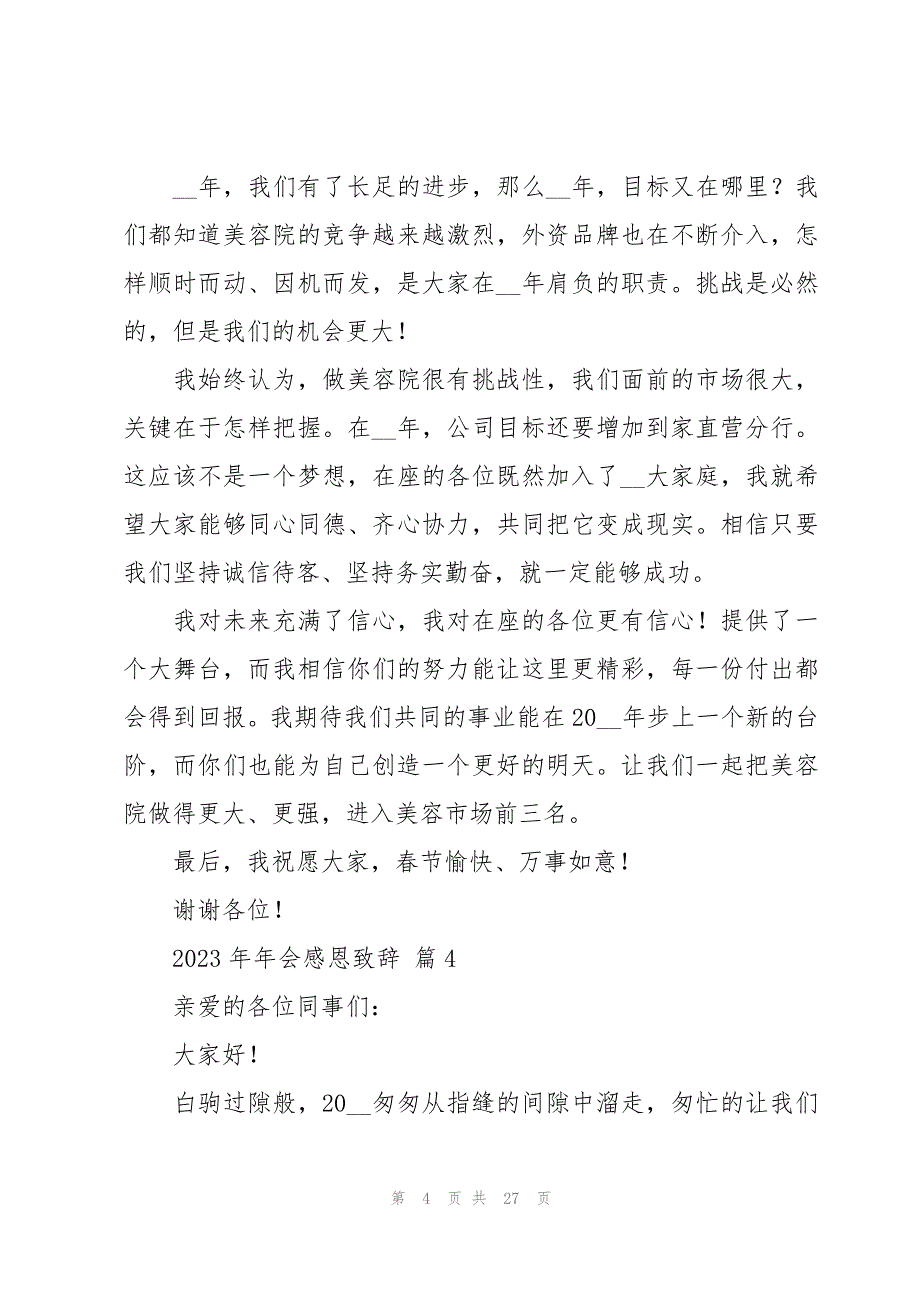 __年，我们有了长足的进步，那么__年，目标又在哪里？我
们都知道美容院的竞争越来越激烈，外资品牌也在不断介入，怎
样顺时而动、因机而发，是大家在__年肩负的职责。挑战是必然
的，但是我们的机会更大！
我始终认为，做美容院很有挑战性，我们面前的市场很大，
关键在于怎样把握。在__年，公司目标还要增加到家直营分行。
这应该不是一个梦想，在座的各位既然加入了__大家庭，我就希
望大家能够同心同德、齐心协力，共同把它变成现实。相信只要
我们坚持诚信待客、坚持务实勤奋，就一定能够成功。
我对未来充满了信心，我对在座的各位更有信心！提供了一
个大舞台，而我相信你们的努力能让这里更精彩，每一份付出都
会得到回报。我期待我们共同的事业能在 20__年步上一个新的台
阶，而你们也能为自己创造一个更好的明天。让我们一起把美容
院做得更大、更强，进入美容市场前三名。
最后，我祝愿大家，春节愉快、万事如意！
谢谢各位！
2023 年年会感恩致辞 篇 4
亲爱的各位同事们：
大家好！
白驹过隙般，20__匆匆从指缝的间隙中溜走，匆忙的让我们
第 4 页 共 27 页